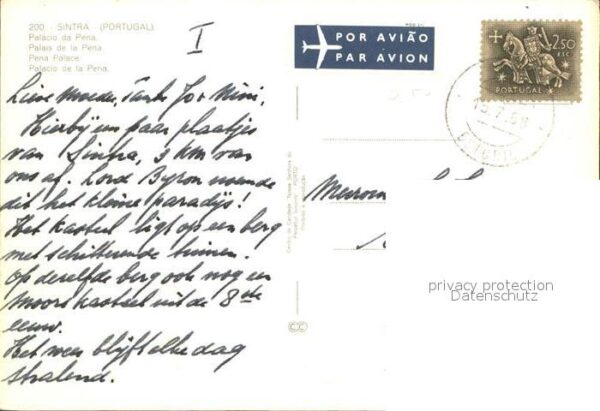 200 - SINTRA - (PORTUGAL)
Palácio da Pena.
Palais de la Pena.
Pena Palace.
Palacio de la Pena.
I
POR AVIÃO
PAR AVION
2$50
ESC.
PORTUGAL
Lieve Moeder, Tante Jo + Mini,
Hierbij een paar plaatjes
van Sintra, 3 km van
ons af. Lord Byron noemde
dit het kleine paradijs!
Het kasteel ligt op een berg
met schitterende tuinen.
Op dezelfde berg ook nog een
Moors kasteel uit de 8ste
eeuw.
Het weer blijft elke dag
stralend.
Mevrouw
PORTO
privacy protection
Datenschutz